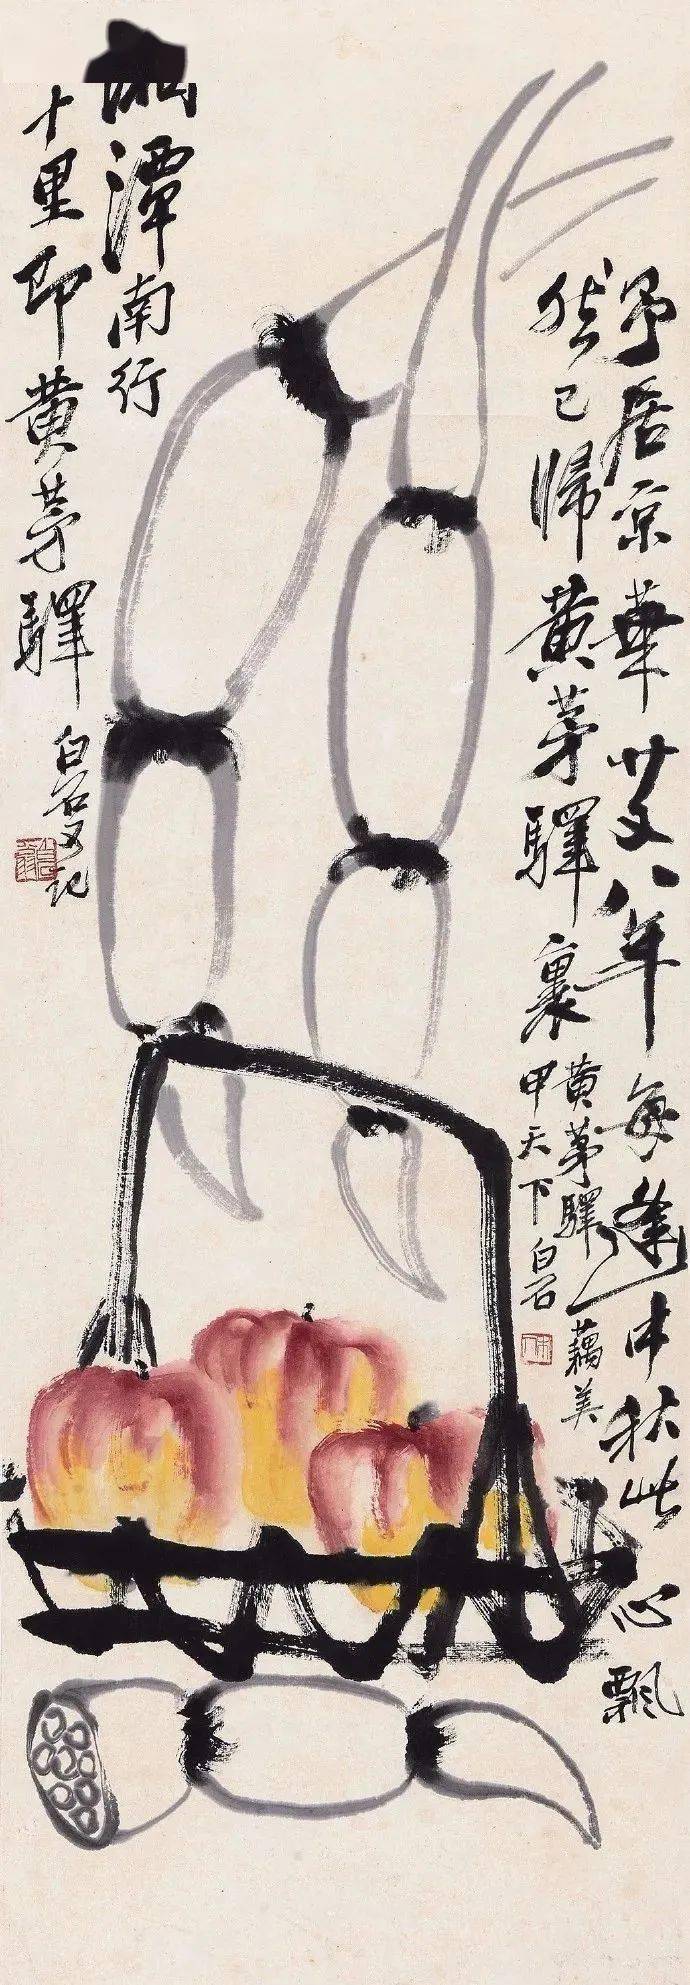 予居京華廿又八年每逢中秋此心飄
然已歸黄茅驛裏
黄茅驛藕美
甲天下白石
湘潭南行
十里即黄茅驛
白石又記